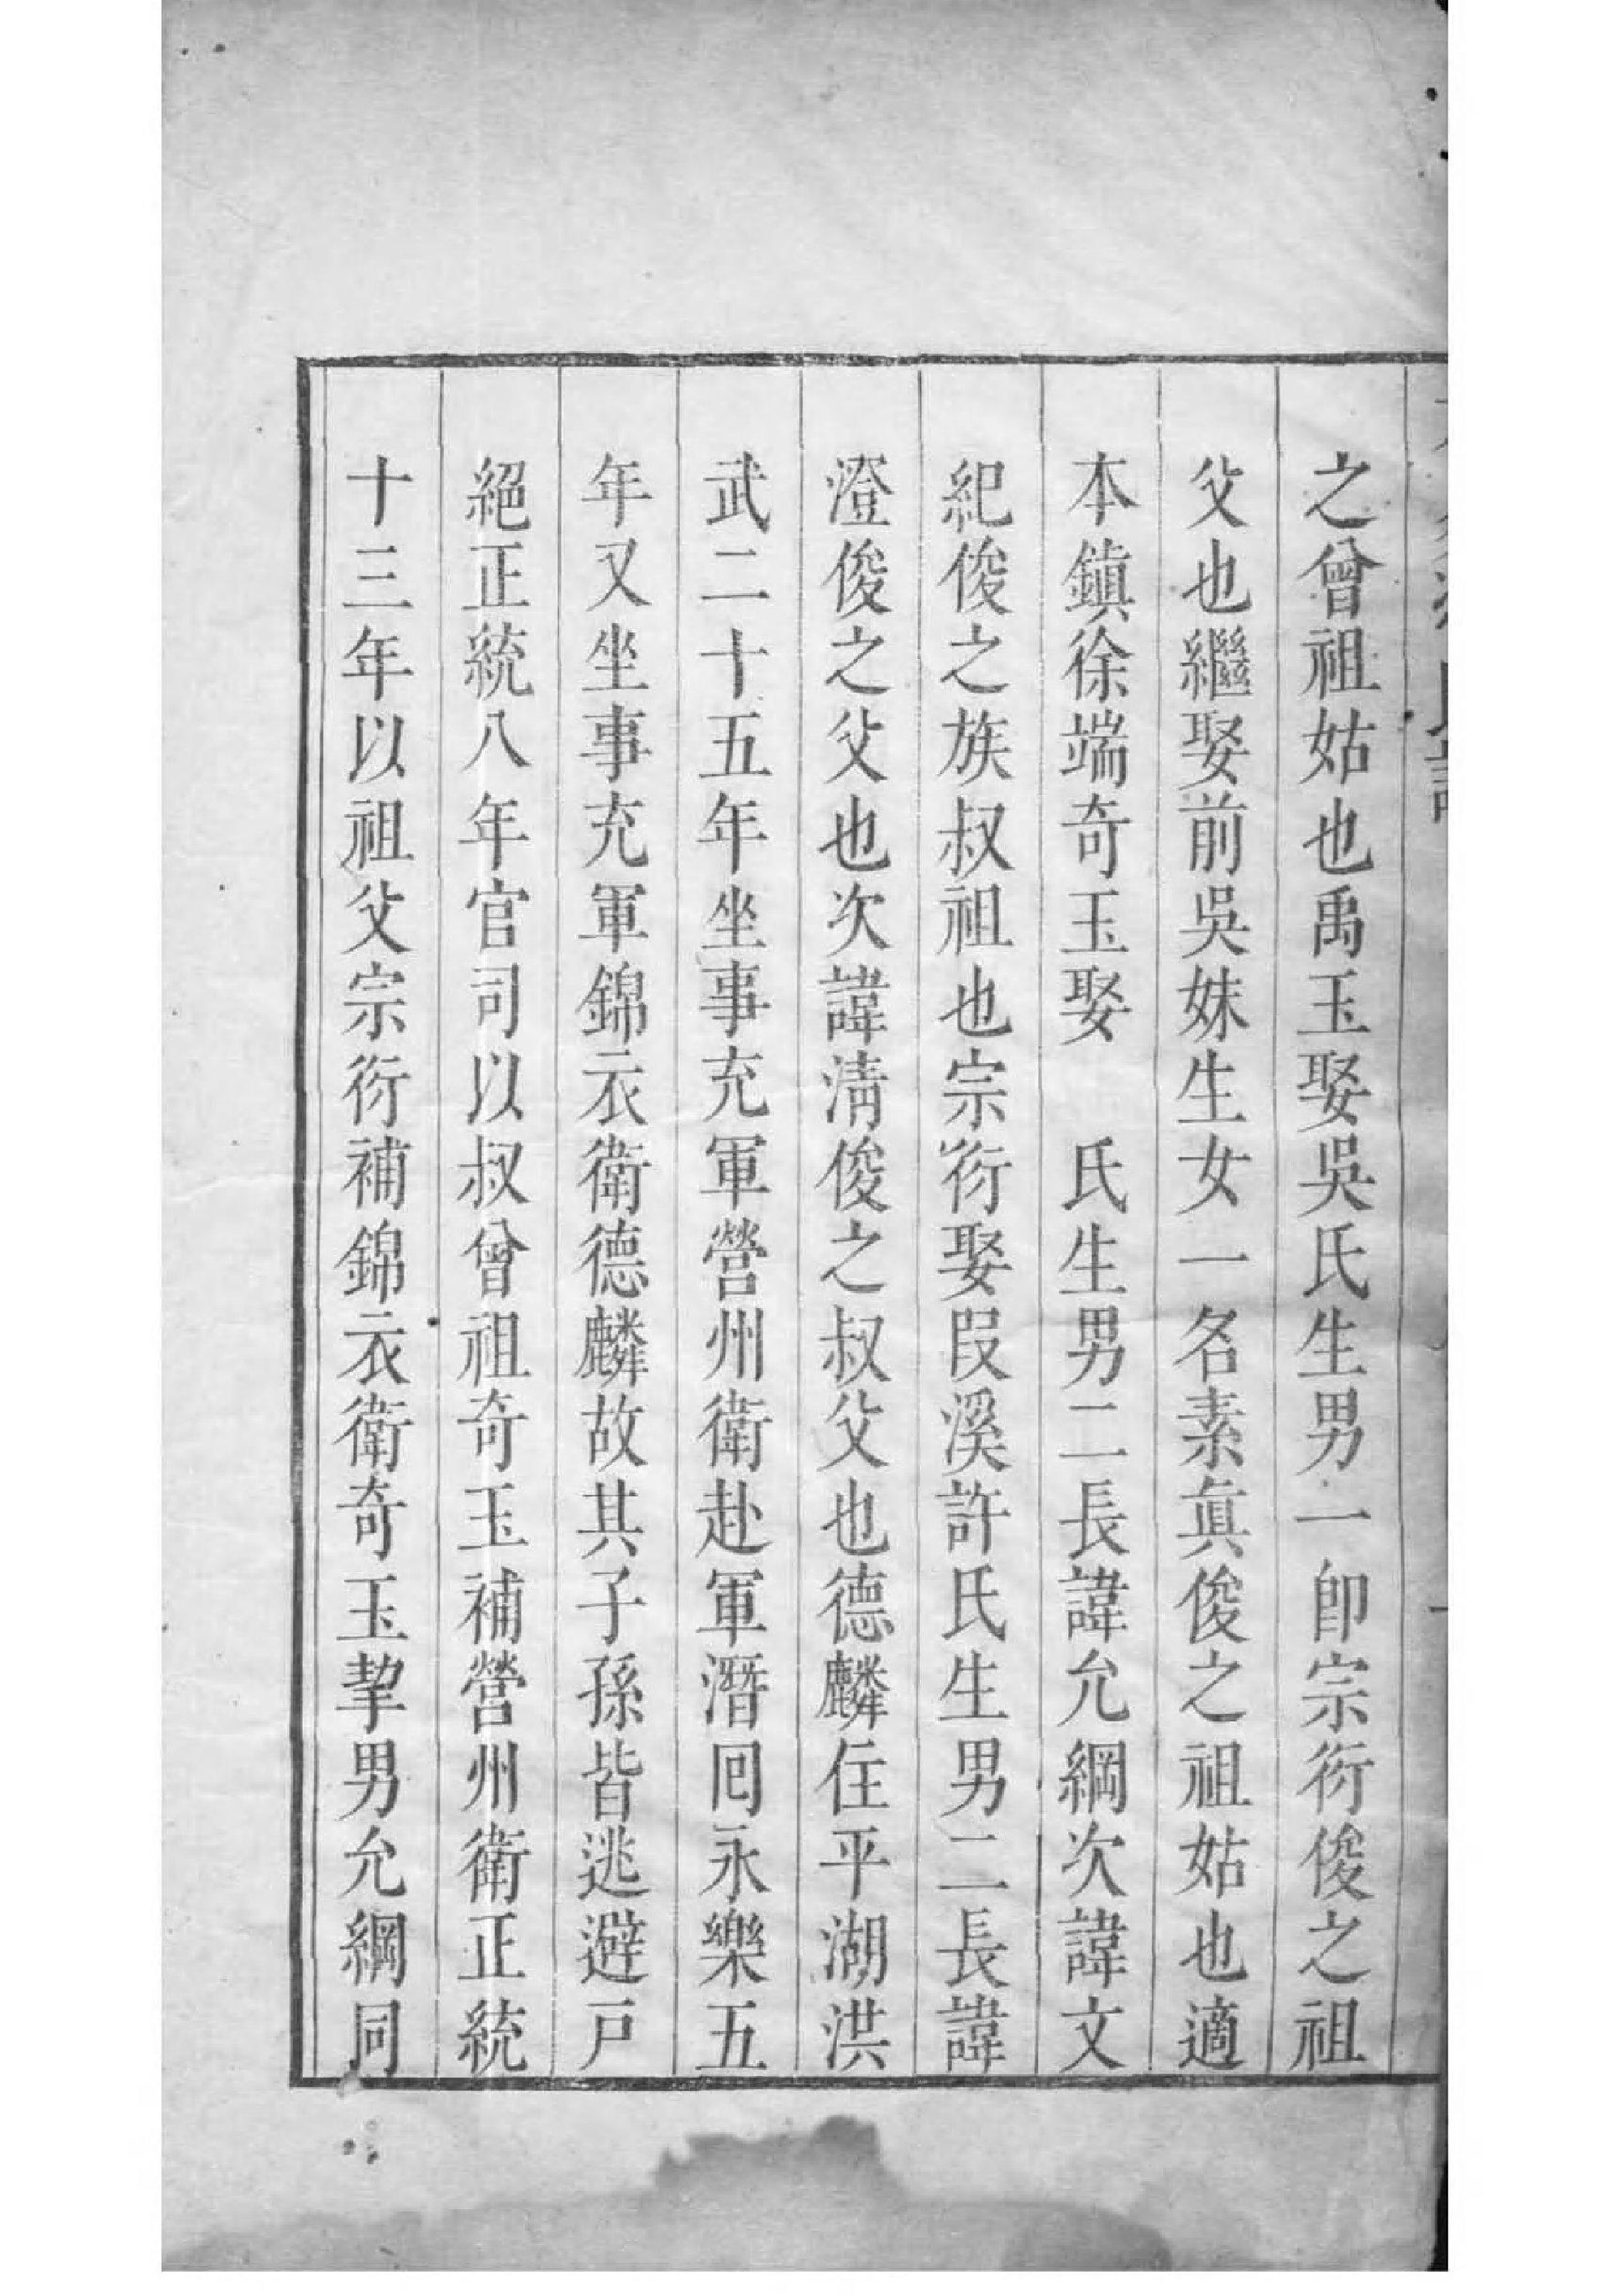 之曾祖姑也禹玉娶吳氏生男一卽宗衍俊之祖
父也繼娶前吳妹生女一名素眞俊之祖姑也適
本鎮徐端奇玉娶　氏生男二長諱允綱次諱文
紀俊之族叔祖也宗衍娶叚溪許氏生男二長諱
澄俊之父也次諱淸俊之叔父也德麟住平湖洪
武二十五年坐事充軍營州衛赴軍潛囘永樂五
年又坐事充軍錦衣衛德麟故其子孫皆逃避戸
絕正統八年官司以叔曾祖奇玉補營州衛正統
十三年以祖父宗衍補錦衣衛奇玉挈男允綱同